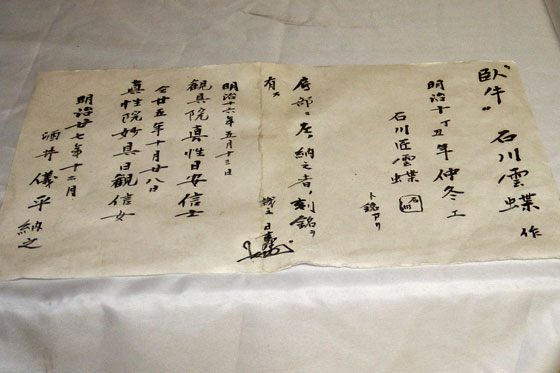 "臥牛" 石川雲蝶 作
明治十丁丑年仲冬工
石川匠雲蝶
ト銘アリ
房部ニ左ノ納之者ノ刻銘ヲ
有ス
明治十六年五月十三日
観具院真性日安信士
仝廿五年十月廿八日
真性院妙具日観信女
明治廿七年十二月
酒井儀平納之